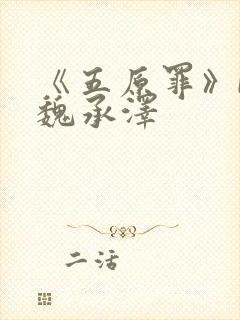 《五原罪》
魏承泽
二活